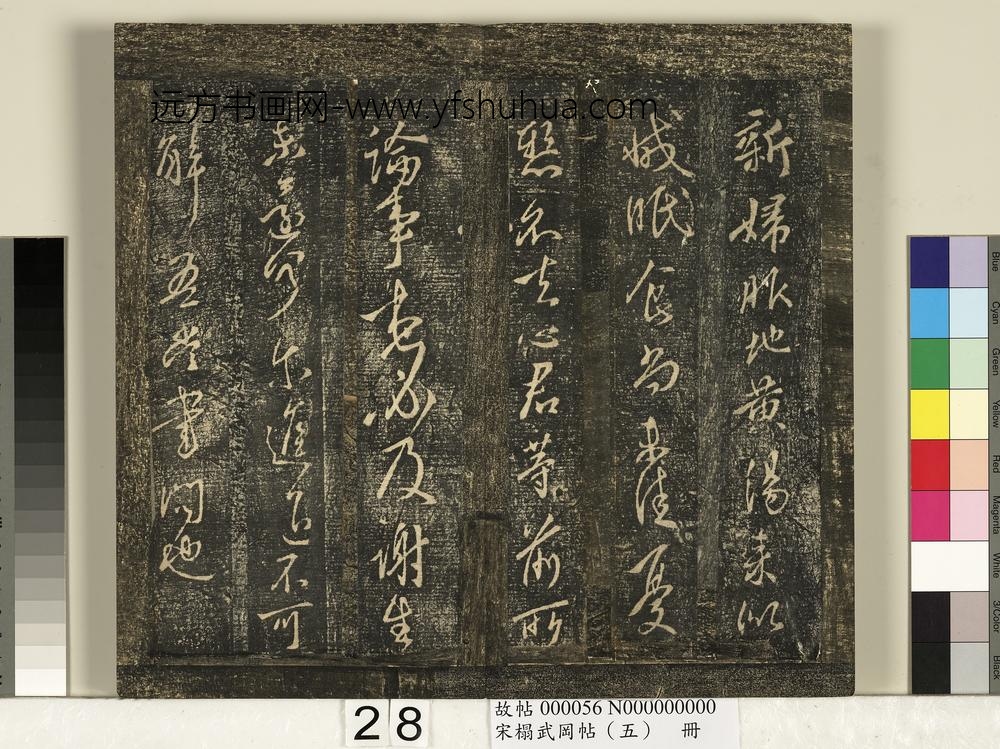 远方书画网-www.yfshuhua.com
新婦服地黃湯來似
減眠食尚未佳憂
懸不去心君等前所
論事想必及謝生
未還可尔進退不可
解吾當書問也
28
故帖 000056 N000000000
宋榻武岡帖（五） 冊
Blue
Cyan
Green
Yellow
Red
Magenta
White
3/Color
Black